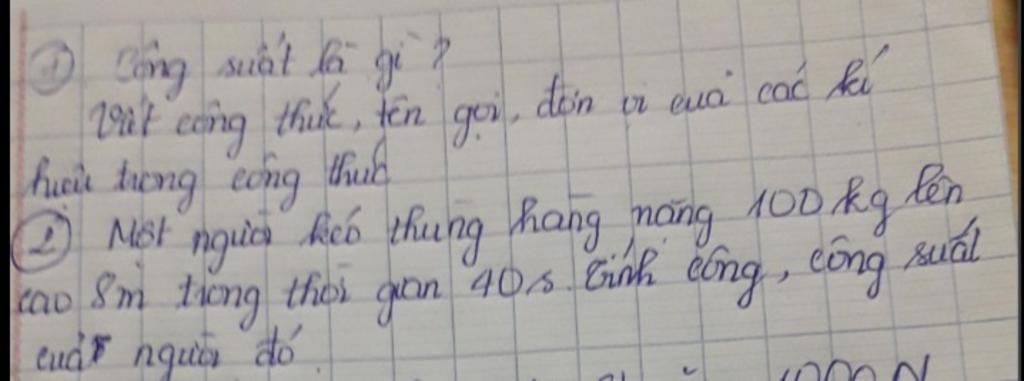 ① Công suất là gì?
Viết công thức, tên gọi, đơn vị của các kí
hiệu trong công thức
② Một người kéo thùng hàng nặng 100 kg lên
cao 8m trong thời gian 40s. Tính công, công suất
của người đó
1000 N